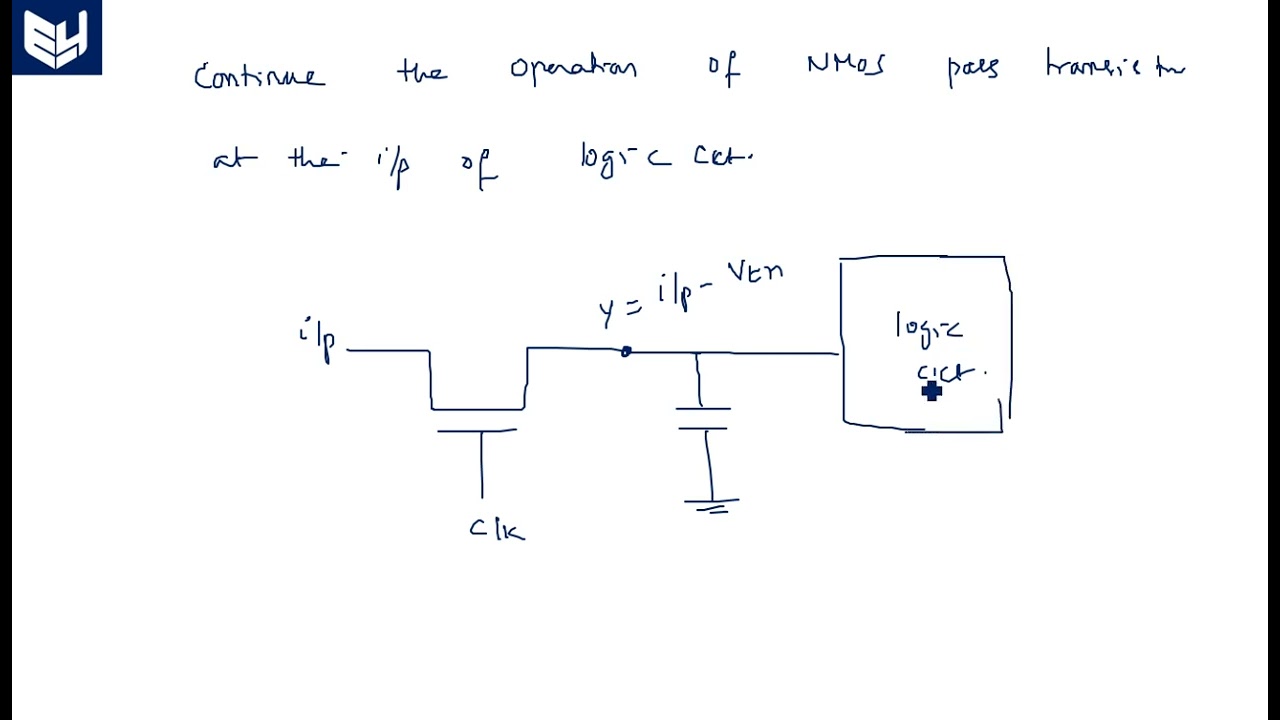 Continue the operation of NMOS pass transistor
at the i/p of logic cct.
y = i/p - Vtn
i/p
logic
cct.
clk